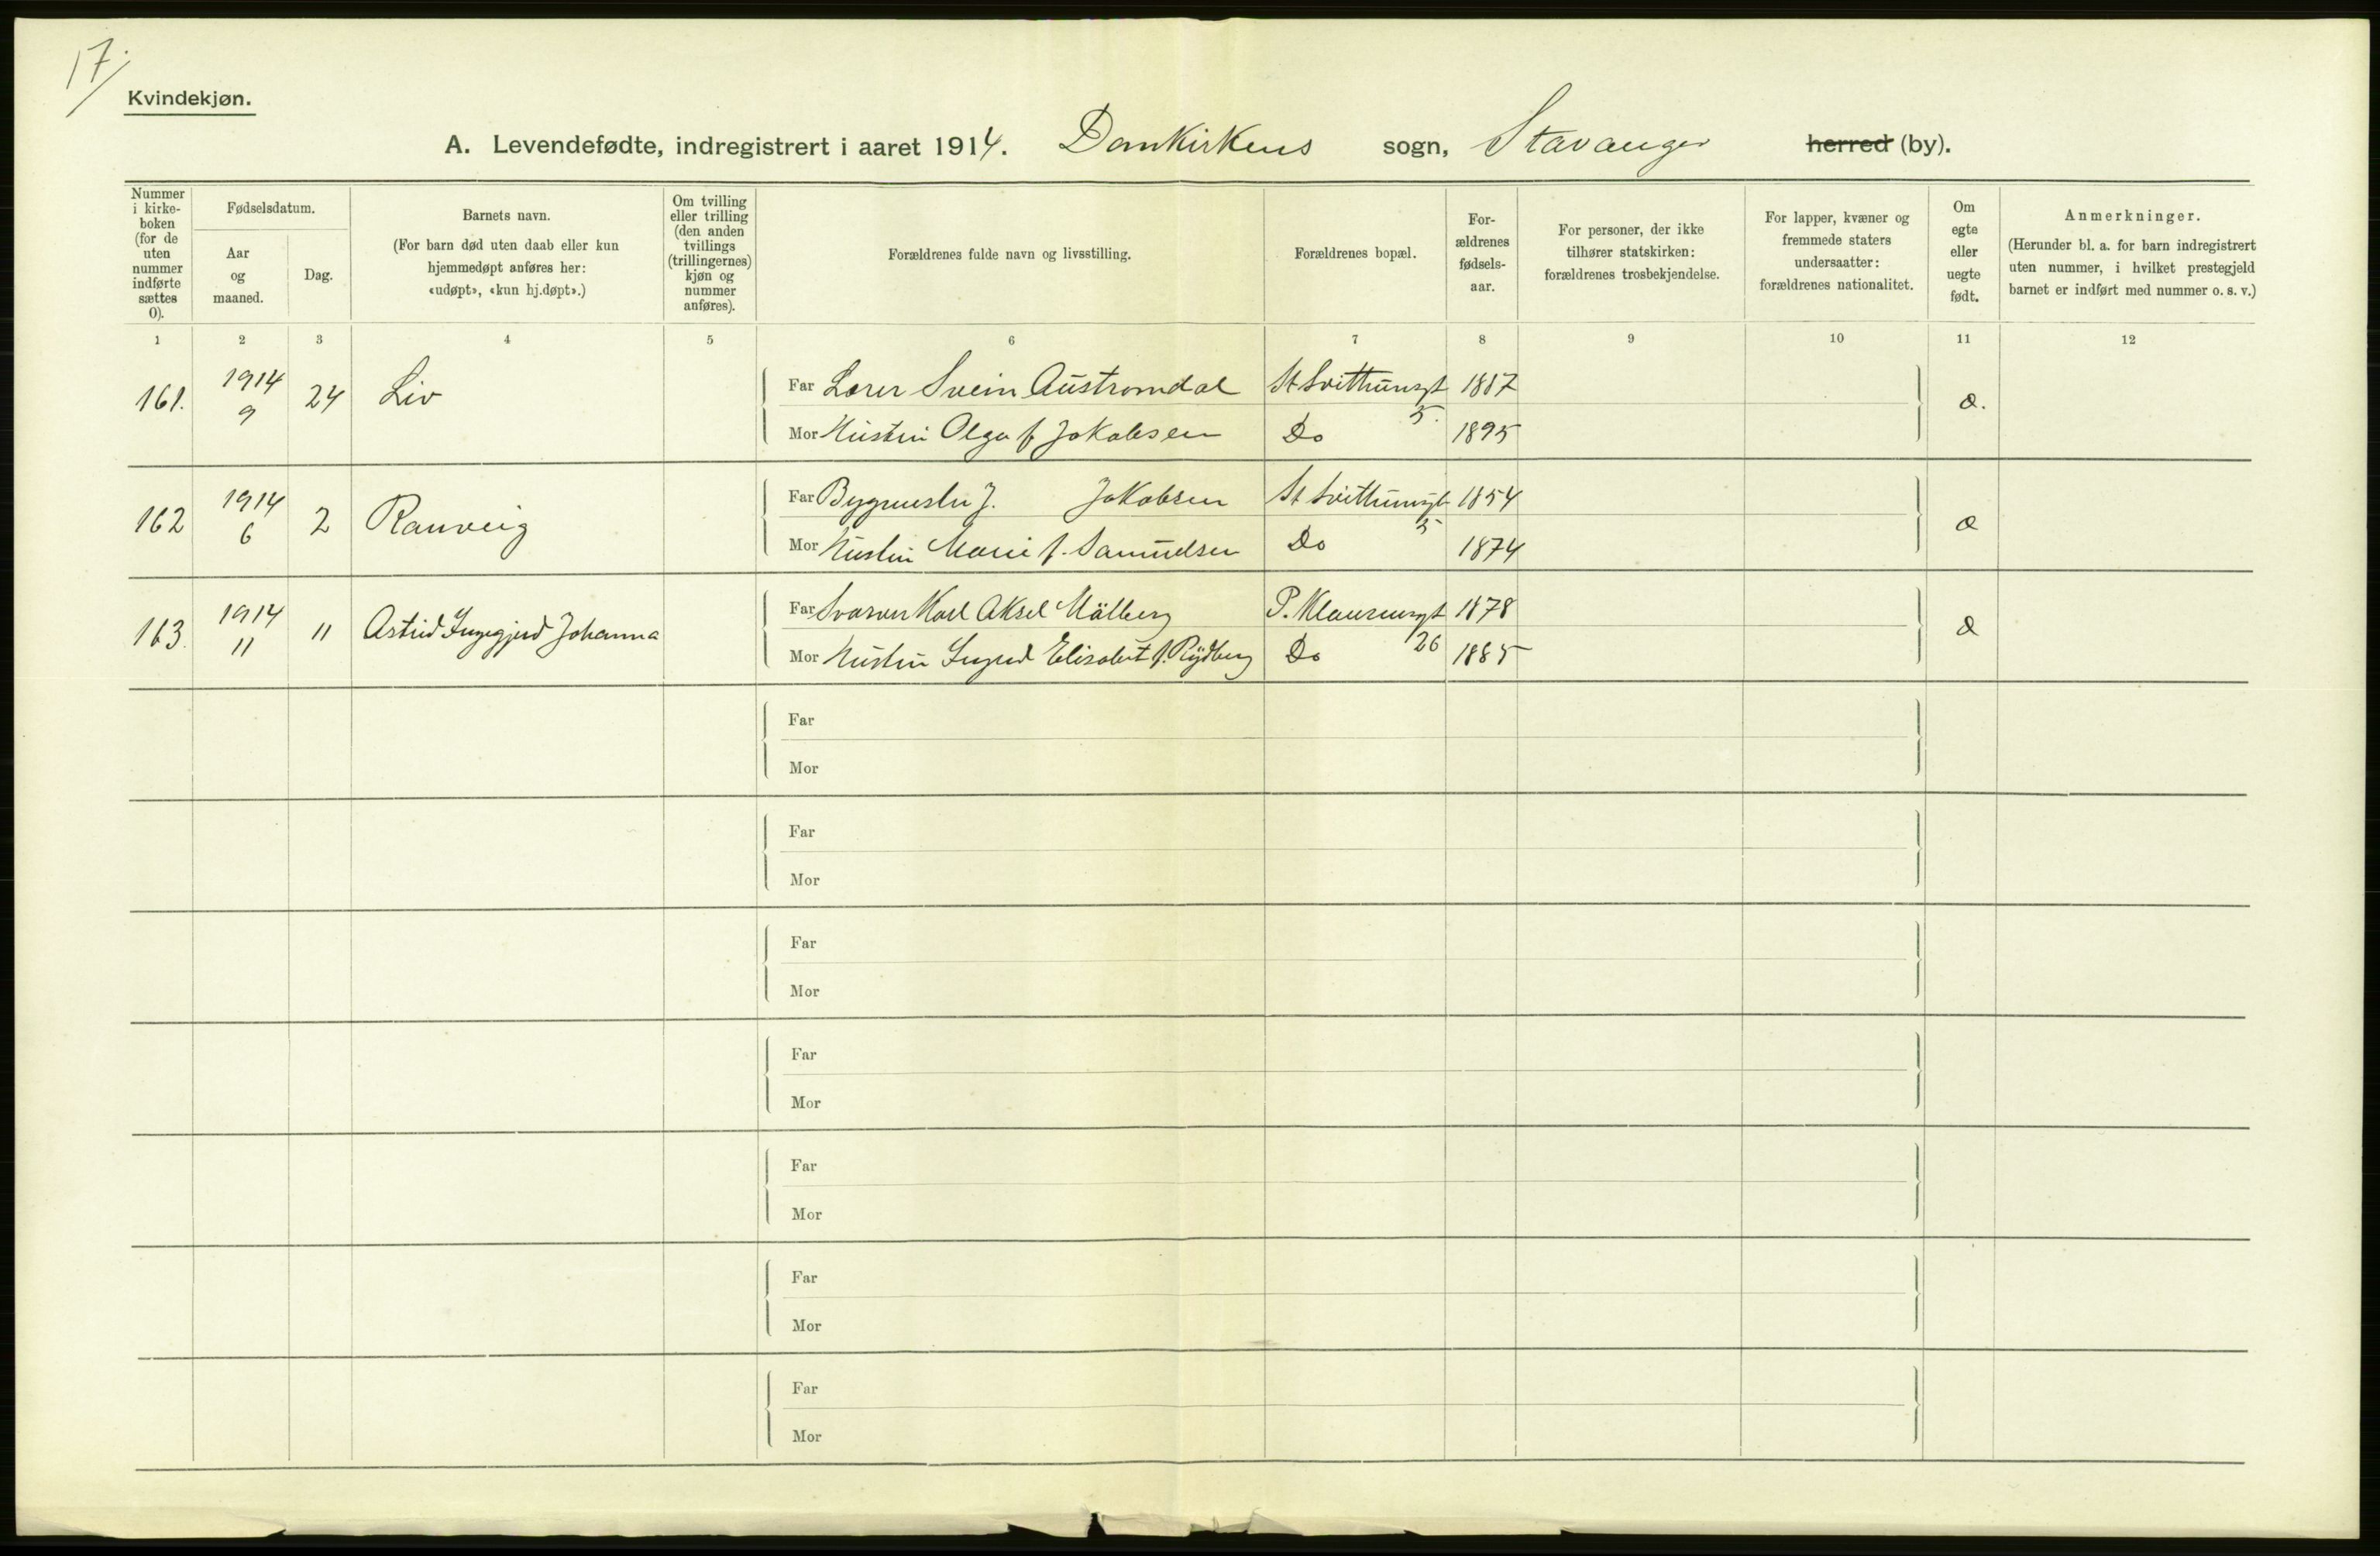 17.
Kvindekjøn.
A. Levendefødte, indregistrert i aaret 1914. Domkirkens sogn, Stavanger herred (by).
Nummer i kirke-boken (for de uten nummer indførte sættes 0).
Fødselsdatum.
Aar og maaned.
Dag.
Barnets navn.
(For barn død uten daab eller kun hjemmedøpt anføres her: «udøpt», «kun hj.døpt».)
Om tvilling eller trilling (den anden tvillings (trillingernes) kjøn og nummer anføres).
Forældrenes fulde navn og livsstilling.
Forældrenes bopæl.
For-ældrenes fødsels-aar.
For personer, der ikke tilhører statskirken: forældrenes trosbekjendelse.
For lapper, kvæner og fremmede staters undersaatter: forældrenes nationalitet.
Om egte eller uegte født.
Anmerkninger.
(Herunder bl. a. for barn indregistrert uten nummer, i hvilket prestegjeld barnet er indført med nummer o. s. v.)
1 2 3 4 5 6 7 8 9 10 11 12
161. 1914 9 24 Liv
Far Lærer Svein Austromdal St Svithunsgt 5. 1887
Mor Hustru Olga f Jakobsen Do 1895
162 1914 6 2 Ranveig
Far Bygmester J. Jakobsen St Svithunsgt 5 1854
Mor Hustru Marie f. Samuelsen Do 1874
163. 1914 11 11 Astrid Ingegjerd Johanna
Far Karl Aksel Målberg P. Klausensgt 26 1878
Mor Hustru Ingrid Elisabet f. Rydberg Do 1885
Far
Mor
Far
Mor
Far
Mor
Far
Mor
Far
Mor
Far
Mor
Far
Mor